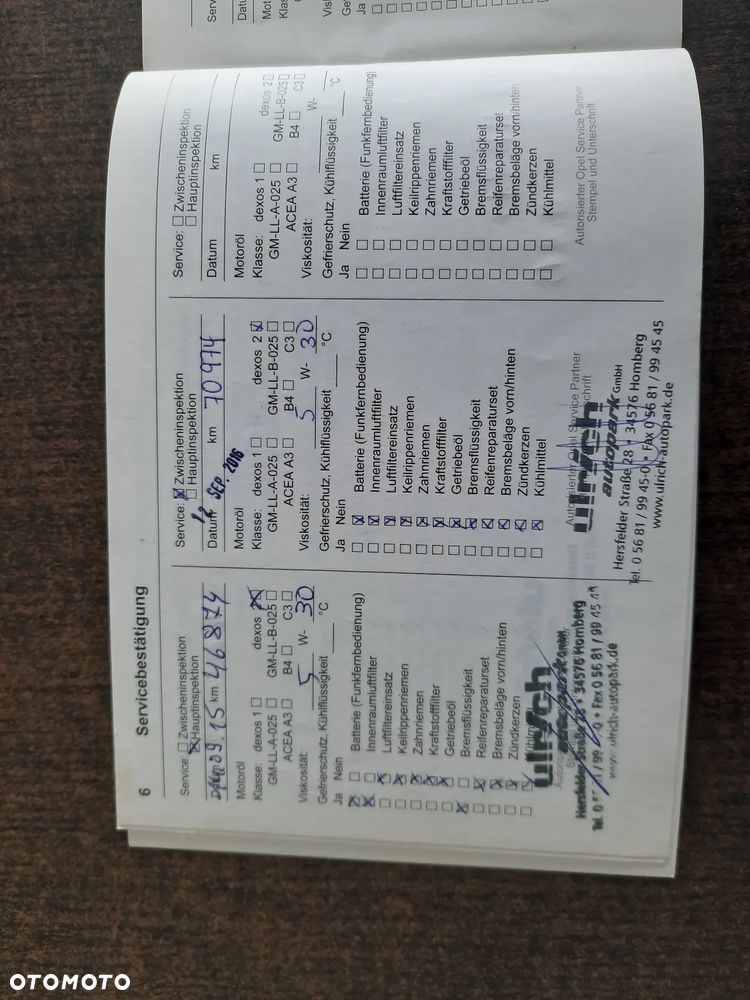 6
Servicebestätigung
Service: ☐ Zwischeninspektion
☒ Hauptinspektion
Datum 09.15 km 46874
Motoröl
Klasse: dexos 1 ☐ dexos 2 ☒
GM-LL-A-025 ☐ GM-LL-B-025 ☐
ACEA A3 ☐ B4 ☐ C3 ☐
Viskosität: 5 W- 30
Gefrierschutz, Kühlflüssigkeit °C
Ja Nein
☒ ☐ Batterie (Funkfernbedienung)
☒ ☐ Innenraumluftfilter
☐ ☒ Luftfiltereinsatz
☐ ☒ Keilrippenriemen
☐ ☒ Zahnriemen
☐ ☒ Kraftstofffilter
☐ ☒ Getriebeöl
☒ ☐ Bremsflüssigkeit
☐ ☒ Reifenreparaturset
☐ ☒ Bremsbeläge vorn/hinten
☐ ☒ Zündkerzen
☐ ☒ Kühlmittel
ulrich
autopark GmbH
Hersfelder Straße 28 • 34576 Homberg
Fax 0 56 81 / 99 45 44
www.ulrich-autopark.de
Service: ☒ Zwischeninspektion
☐ Hauptinspektion
Datum 12 SEP. 2016 km 70974
Motoröl
Klasse: dexos 1 ☐ dexos 2 ☒
GM-LL-A-025 ☐ GM-LL-B-025 ☐
ACEA A3 ☐ B4 ☐ C3 ☐
Viskosität: 5 W- 30
Gefrierschutz, Kühlflüssigkeit °C
Ja Nein
☐ ☒ Batterie (Funkfernbedienung)
☐ ☒ Innenraumluftfilter
☐ ☒ Luftfiltereinsatz
☐ ☒ Keilrippenriemen
☐ ☒ Zahnriemen
☐ ☒ Kraftstofffilter
☐ ☒ Getriebeöl
☐ ☒ Bremsflüssigkeit
☐ ☒ Reifenreparaturset
☐ ☒ Bremsbeläge vorn/hinten
☐ ☒ Zündkerzen
☐ ☒ Kühlmittel
Autorisierter Opel Service Partner
ulrich
autopark GmbH
Hersfelder Straße 28 • 34576 Homberg
Tel. 0 56 81 / 99 45-0 • Fax 0 56 81 / 99 45 45
www.ulrich-autopark.de
Service: ☐ Zwischeninspektion
☐ Hauptinspektion
Datum km
Motoröl
Klasse: dexos 1 ☐ dexos 2 ☐
GM-LL-A-025 ☐ GM-LL-B-025 ☐
ACEA A3 ☐ B4 ☐ C3 ☐
Viskosität: W-
Gefrierschutz, Kühlflüssigkeit °C
Ja Nein
☐ ☐ Batterie (Funkfernbedienung)
☐ ☐ Innenraumluftfilter
☐ ☐ Luftfiltereinsatz
☐ ☐ Keilrippenriemen
☐ ☐ Zahnriemen
☐ ☐ Kraftstofffilter
☐ ☐ Getriebeöl
☐ ☐ Bremsflüssigkeit
☐ ☐ Reifenreparaturset
☐ ☐ Bremsbeläge vorn/hinten
☐ ☐ Zündkerzen
☐ ☐ Kühlmittel
Autorisierter Opel Service Partner
Stempel und Unterschrift
Ja
OTOMOTO